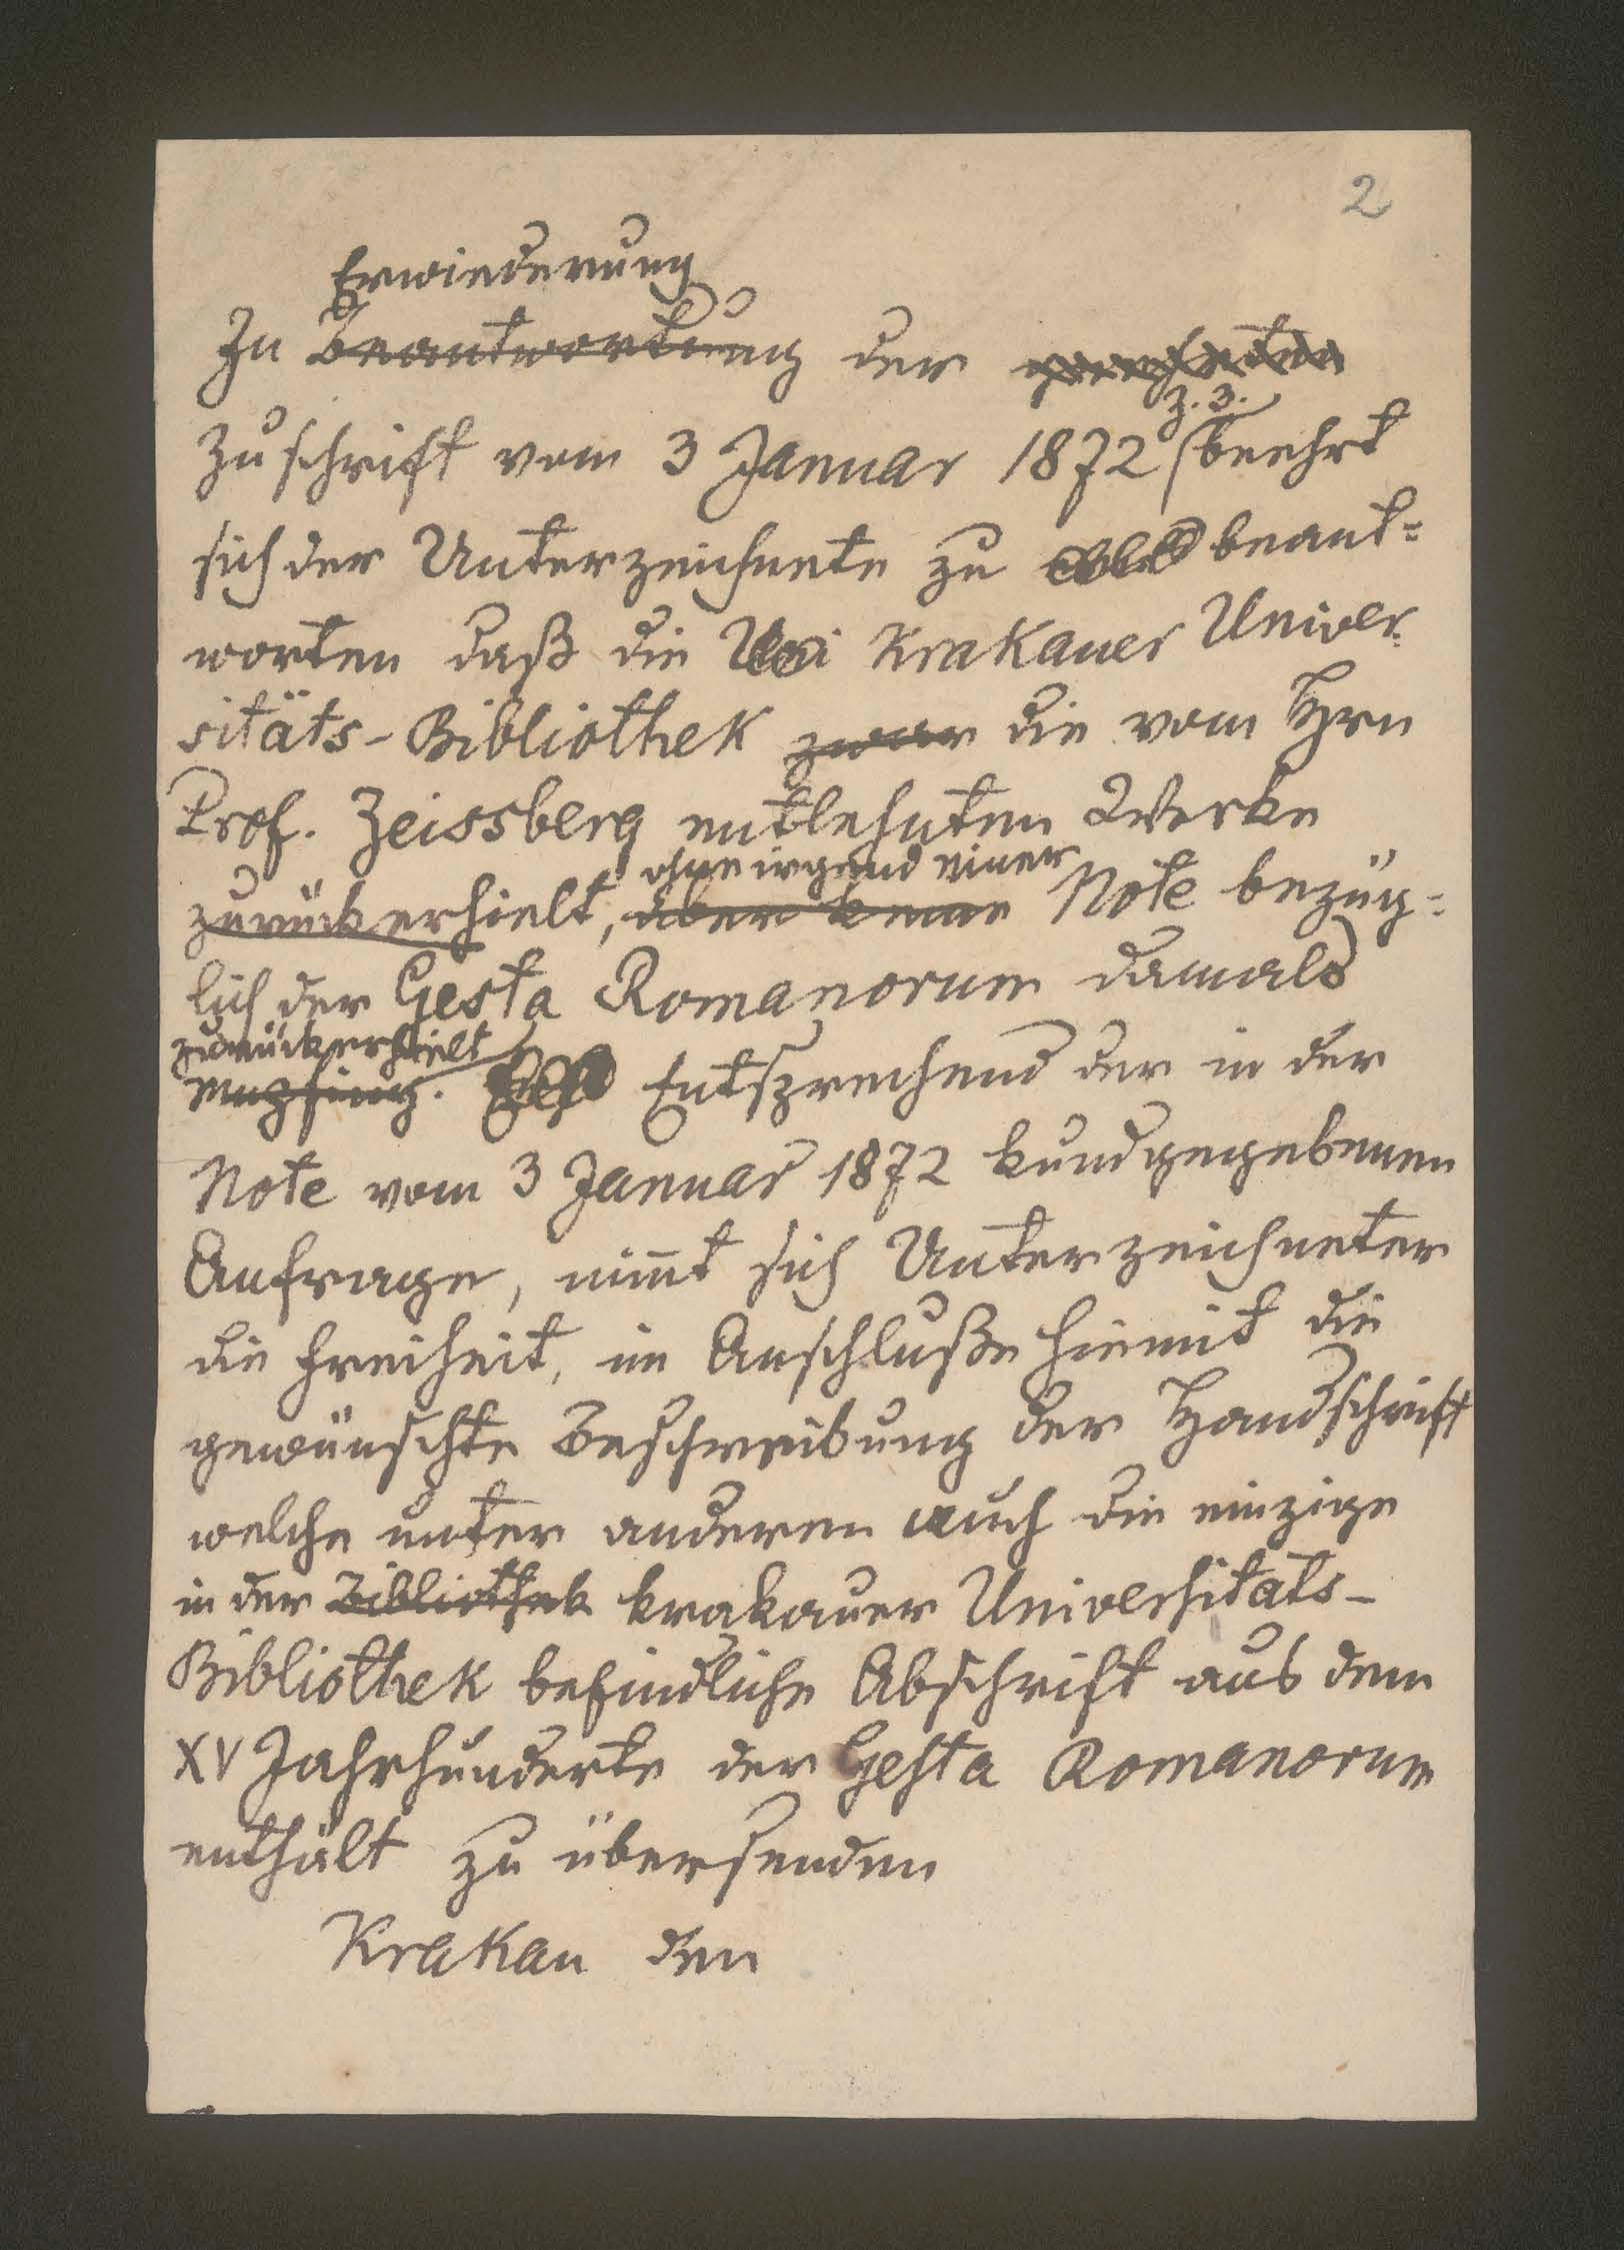 2
Erwiederung
In Beantwortung der geehrten
Z. 3.
Zuschrift vom 3 Januar 1872 beehrt
sich der Unterzeichnete zu beant=
worten daß die Uni Krakauer Univer-
sitäts-Bibliothek zwar die vom Hrn
Prof. Zeissberg entlehnten Werke
ohne irgend einer
zurückerhielt, aber keine Note bezüg=
lich der Gesta Romanorum damals
zurückerhielt
empfing. Entsprechend der in der
Note vom 3 Januar 1872 kundgegebenen
Anfrage, nim̄t sich Unterzeichneter
die Freiheit, im Anschluße hiemit die
gewünschte Beschreibung der Handschrift
welche unter anderen auch die einzige
in der Bibliothek krakauer Universitats-
Bibliothek befindliche Abschrift aus dem
XV Jahrhunderte der Gesta Romanorum
enthält zu übersenden
Krakau den